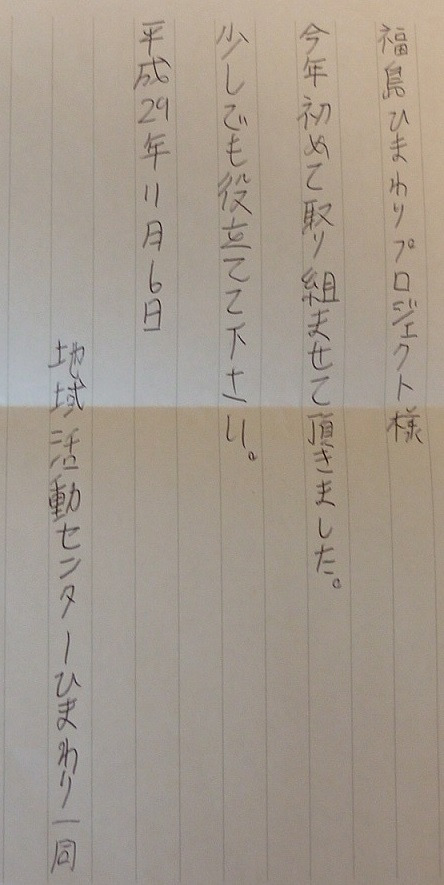 福島ひまわりプロジェクト様
今年初めて取り組ませて頂きました。
少しでも役立てて下さい。
平成29年11月6日
地域活動センターひまわり一同